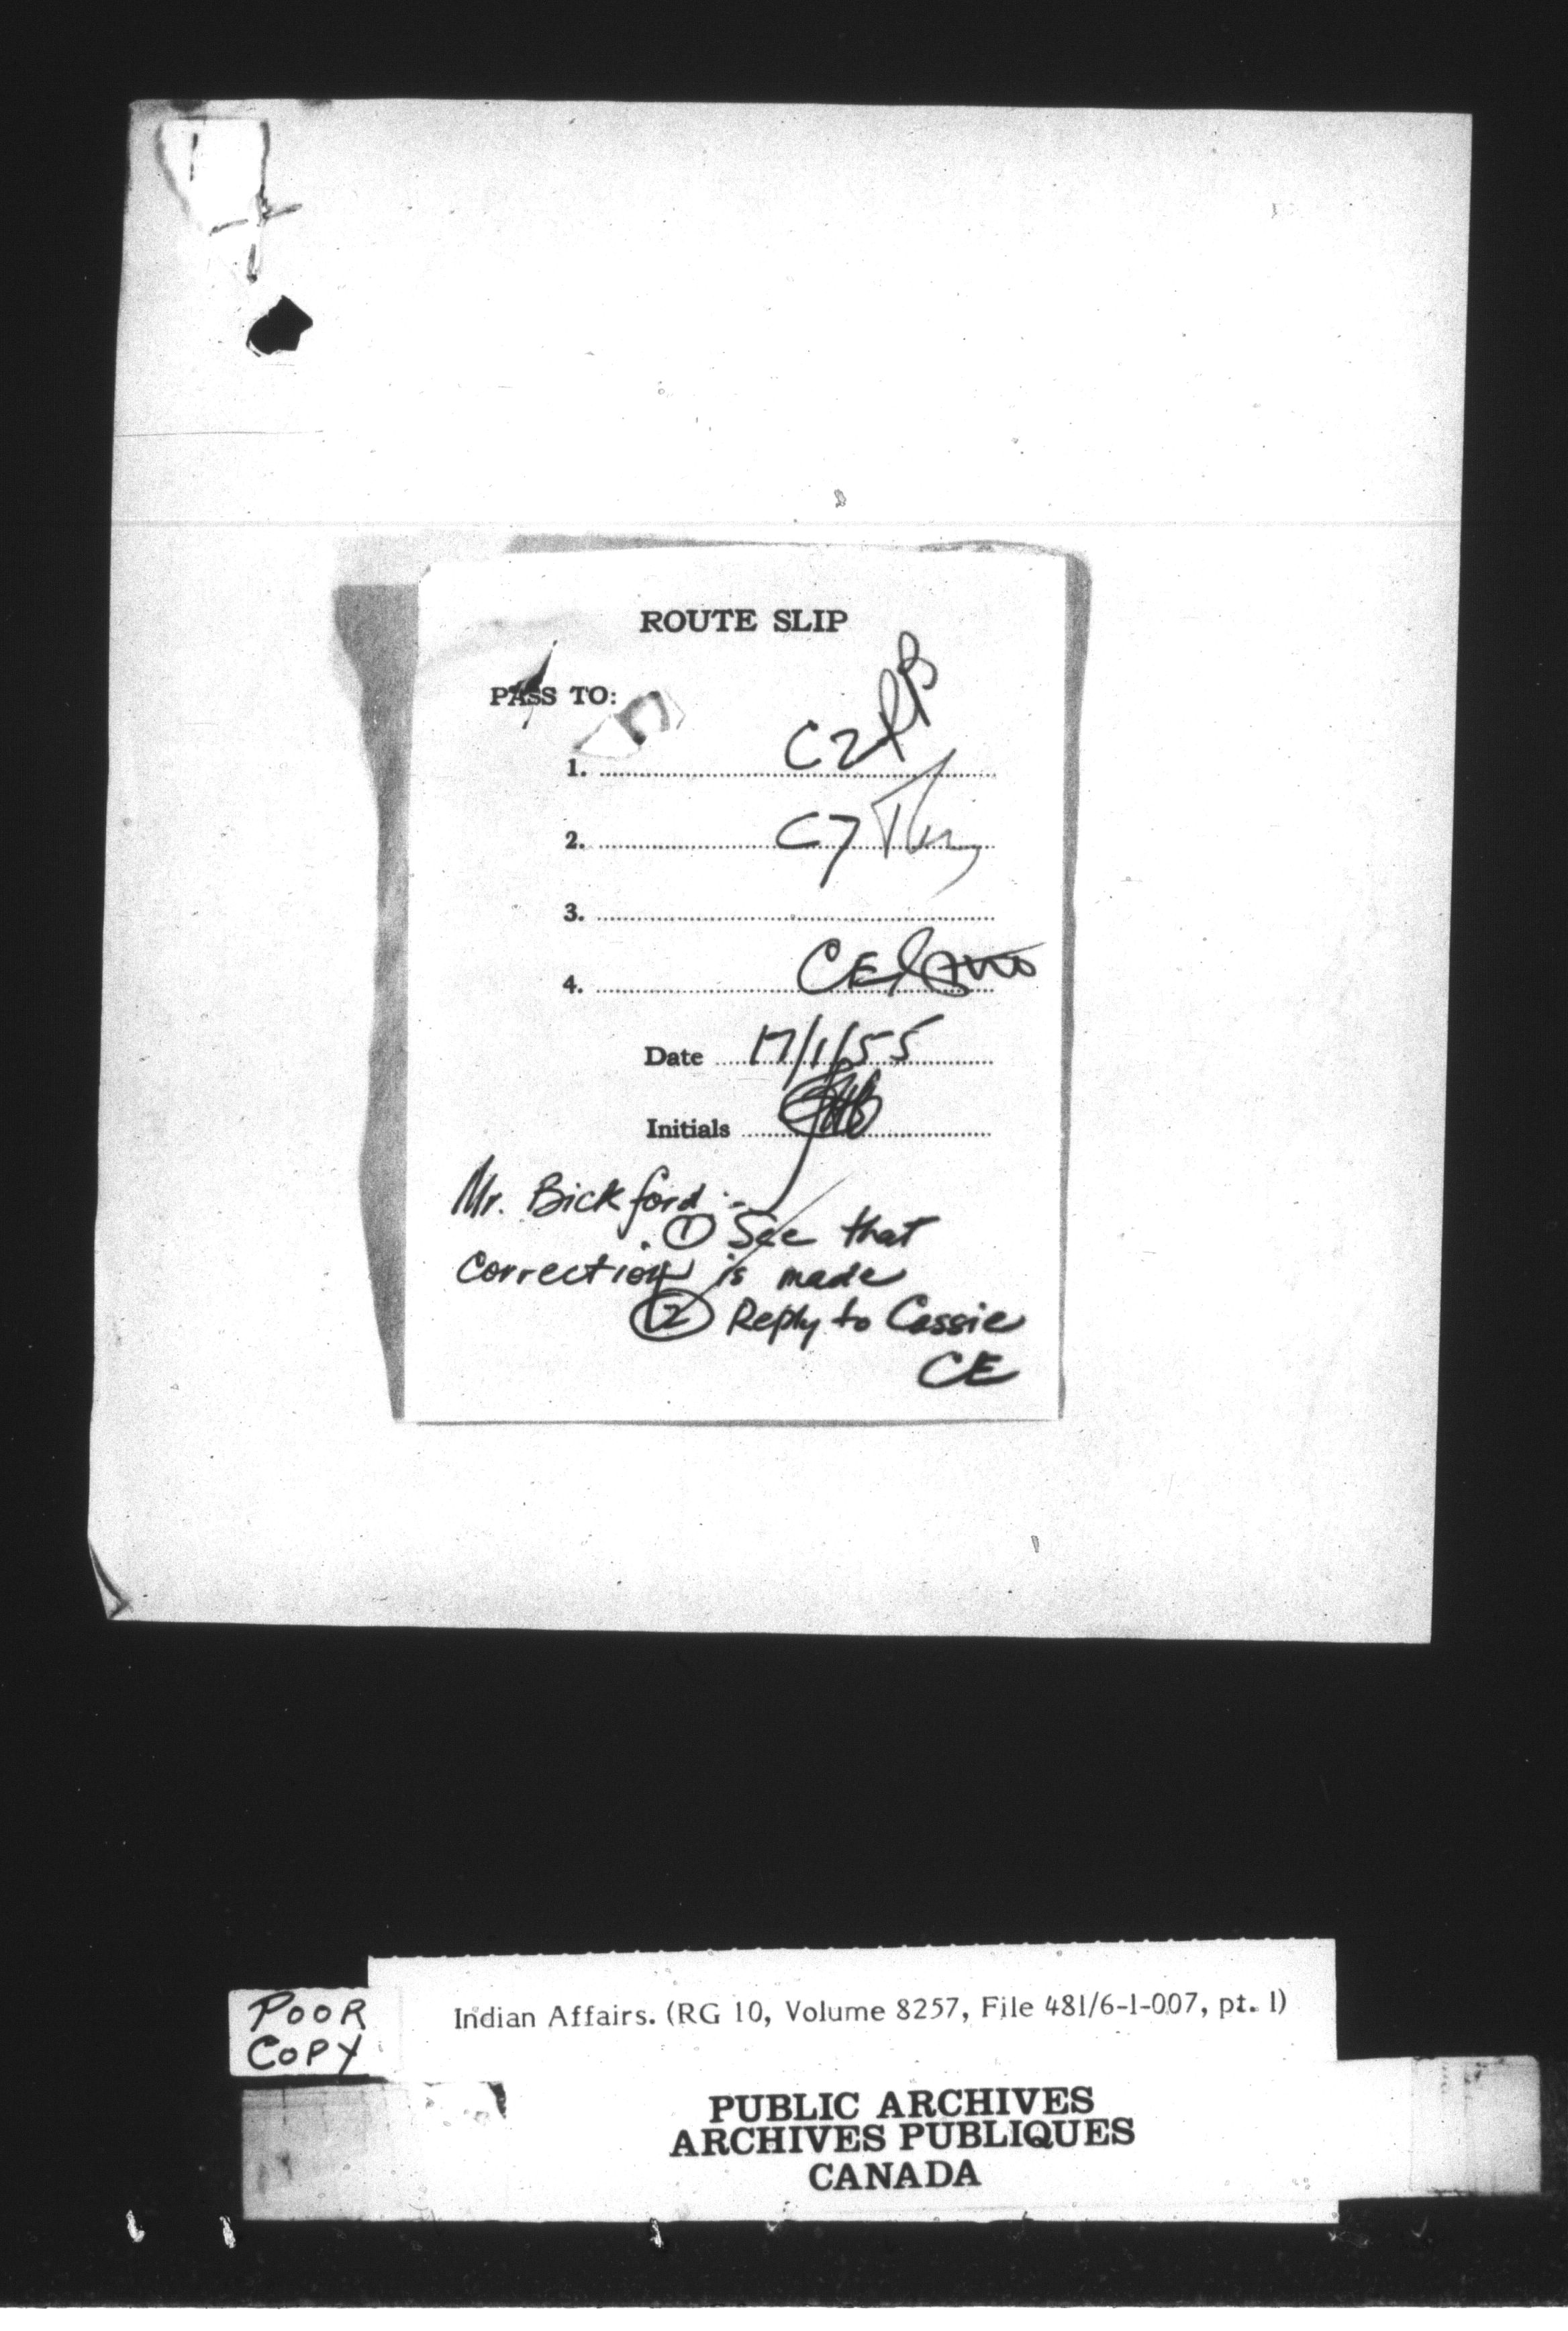 ROUTE SLIP
PASS TO:
1. C2
2. C7
3.
4. CE
Date 17/1/55
Initials
Mr. Bickford :-
① See that
correction is made
② Reply to Cassie
CE
POOR
COPY
Indian Affairs. (RG 10, Volume 8257, File 481/6-1-007, pt. 1)
PUBLIC ARCHIVES
ARCHIVES PUBLIQUES
CANADA